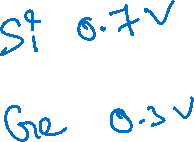 Si 0.7 V
Ge 0.3 V